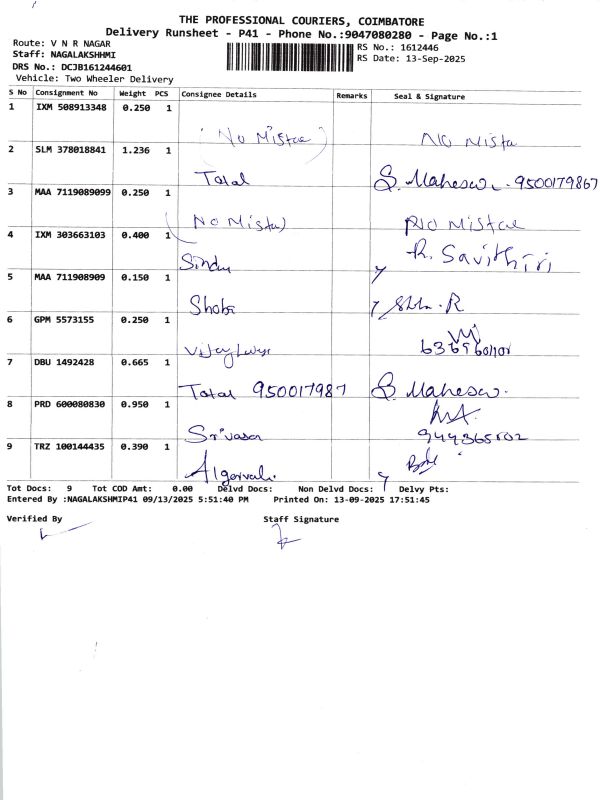 THE PROFESSIONAL COURIERS, COIMBATORE
Delivery Runsheet - P41 - Phone No.:9047080280 - Page No.:1
Route: V N R NAGAR
Staff: NAGALAKSHHMI
DRS No.: DCJB161244601
Vehicle: Two Wheeler Delivery
RS No.: 1612446
RS Date: 13-Sep-2025
S No Consignment No Weight PCS Consignee Details Remarks Seal & Signature
1 IXM 508913348 0.250 1 (No Mistae) No Mista
2 SLM 378018841 1.236 1 Total S. Maheswr. 9500179867
3 MAA 7119089099 0.250 1 (No Mista) No Mistae
4 IXM 303663103 0.400 1 Sindu R. Savithiri
5 MAA 711908909 0.150 1 Shoba
6 GPM 5573155 0.250 1
7 DBU 1492428 0.665 1 Total 950017987 S. Maheswr.
8 PRD 600080830 0.950 1 Srivasan
9 TRZ 100144435 0.390 1
Tot Docs: 9 Tot COD Amt: 0.00 Delvd Docs: Non Delvd Docs: Delvy Pts:
Entered By :NAGALAKSHMIP41 09/13/2025 5:51:40 PM Printed On: 13-09-2025 17:51:45
Verified By Staff Signature